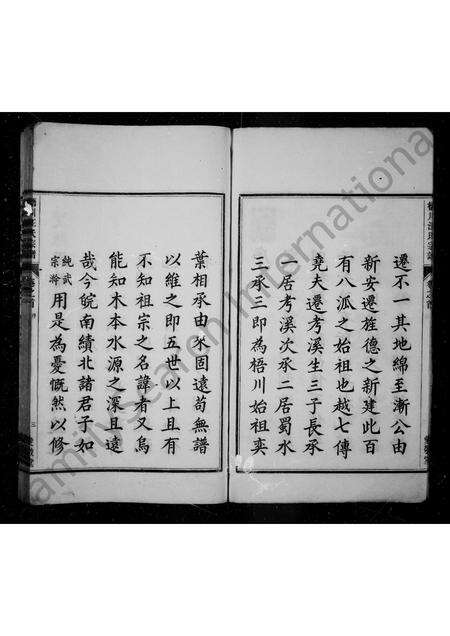 遷不一其地綿至漸公由
新安遷旌德之新建此百
有八派之始祖也越七傳
堯夫遷考溪生三子長承
一居考溪次承二居蜀水
三承三即為梧川始祖奕
葉相承由來固遠苟無譜
以維之即五世以上且有
不知祖宗之名諱者又烏
能知木本水源之深且遠
哉今皖南績北諸君子如
純武
宗瀚
用是為憂慨然以修
三
FamilySearch International